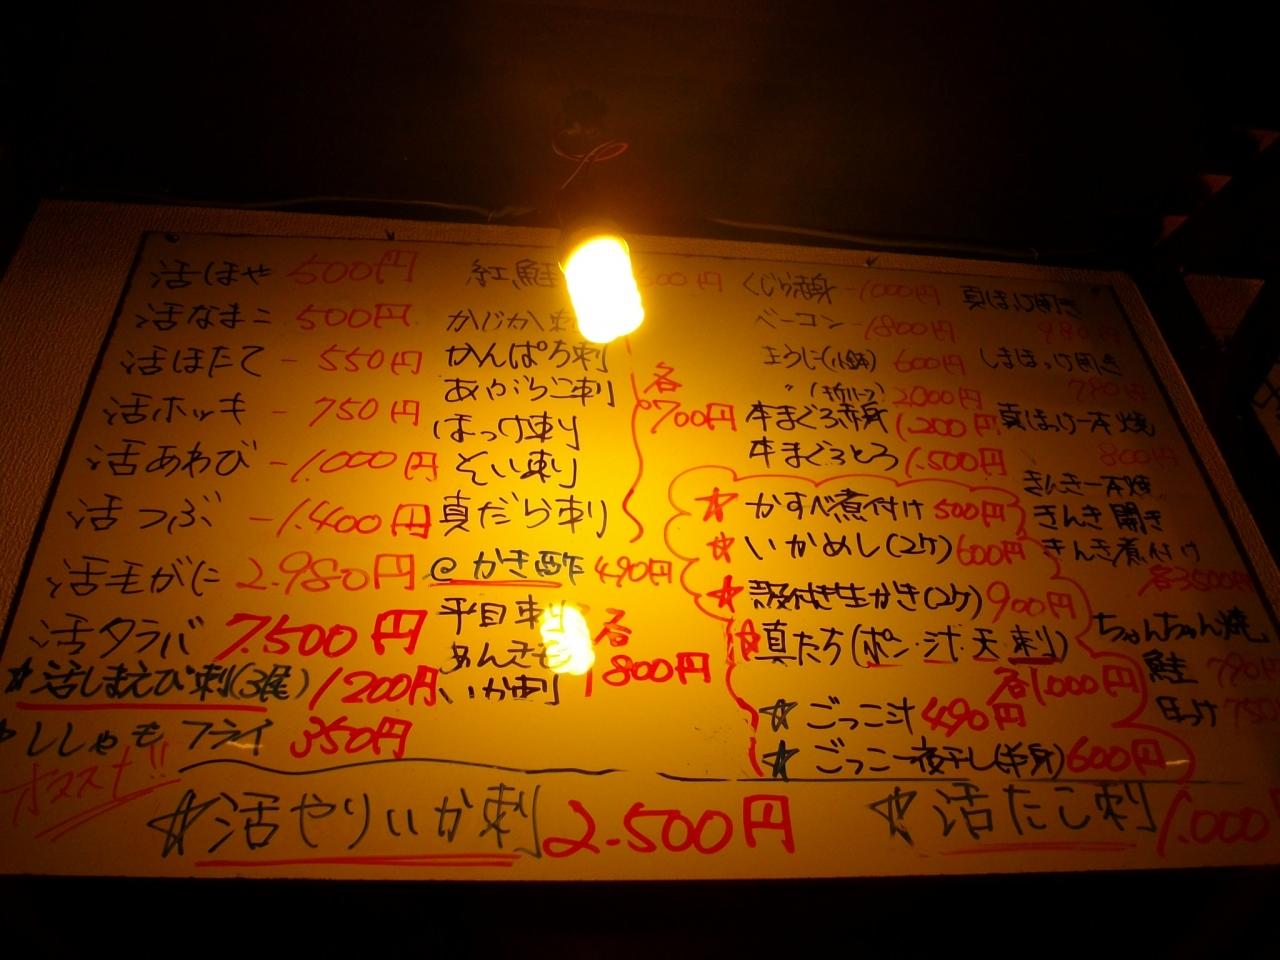 活ほや 500円
活なまこ 500円
活ほたて - 550円
活ホッキ - 750円
活あわび - 1.000円
活つぶ - 1.400円
活毛がに 2.980円
活タラバ 7.500円
☆活しまえび刺(3尾) 1200円
ししゃもフライ 350円
オススメ!!
紅鮭
かじか刺
かんぱち刺
あぶらこ刺
ほっけ刺
そい刺
真だら刺
各700円
@かき酢 490円
平目刺
あんきも
いか刺
各800円
くじら赤身 - 1000円
ベーコン - 1800円
生うに(小鉢) 600円
〃 2000円
本まぐろ赤身 1200円
本まぐろとろ 1.500円
☆かすべ煮付け 500円
☆いかめし(2ケ) 600円
☆殻付き生かき(2ケ) 900円
真たち(ポン・汁・天・刺)
各1,000円
☆ごっこ汁 490円
☆ごっこ一夜干し(半身) 600円
真ほっけ開き
980円
しまほっけ開き
780円
真ほっけ一本焼
800円
きんき一本焼
きんき開き
きんき煮付け
各3500円
ちゃんちゃん焼
鮭 790円
ほっけ 750
☆活やりいか刺 2.500円
☆活たこ刺 1.000